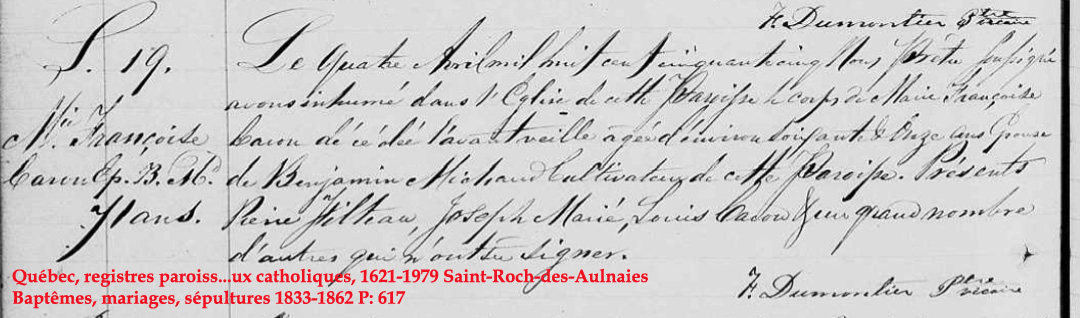 F. Dumontier Ptre Vicaire
S. 19.
Mie Françoise
Caron Ep. B. Md
71 ans.
Le quatre Avril mil huit cent cinquante cinq Nous Prêtre soussigné
avons inhumé dans l'Eglise de cette Paroisse le corps de Marie Françoise
Caron décédée l'avant veille agée d'environ soixante & Onze ans Epouse
de Benjamin Michaud Cultivateur de cette Paroisse. Présents
Pierre Joseph Marié, Louis Caron & un grand nombre
d'autres qui n'ont su signer.
F. Dumontier Ptre Vicaire
Québec, registres paroiss...ux catholiques, 1621-1979 Saint-Roch-des-Aulnaies
Baptêmes, mariages, sépultures 1833-1862 P: 617